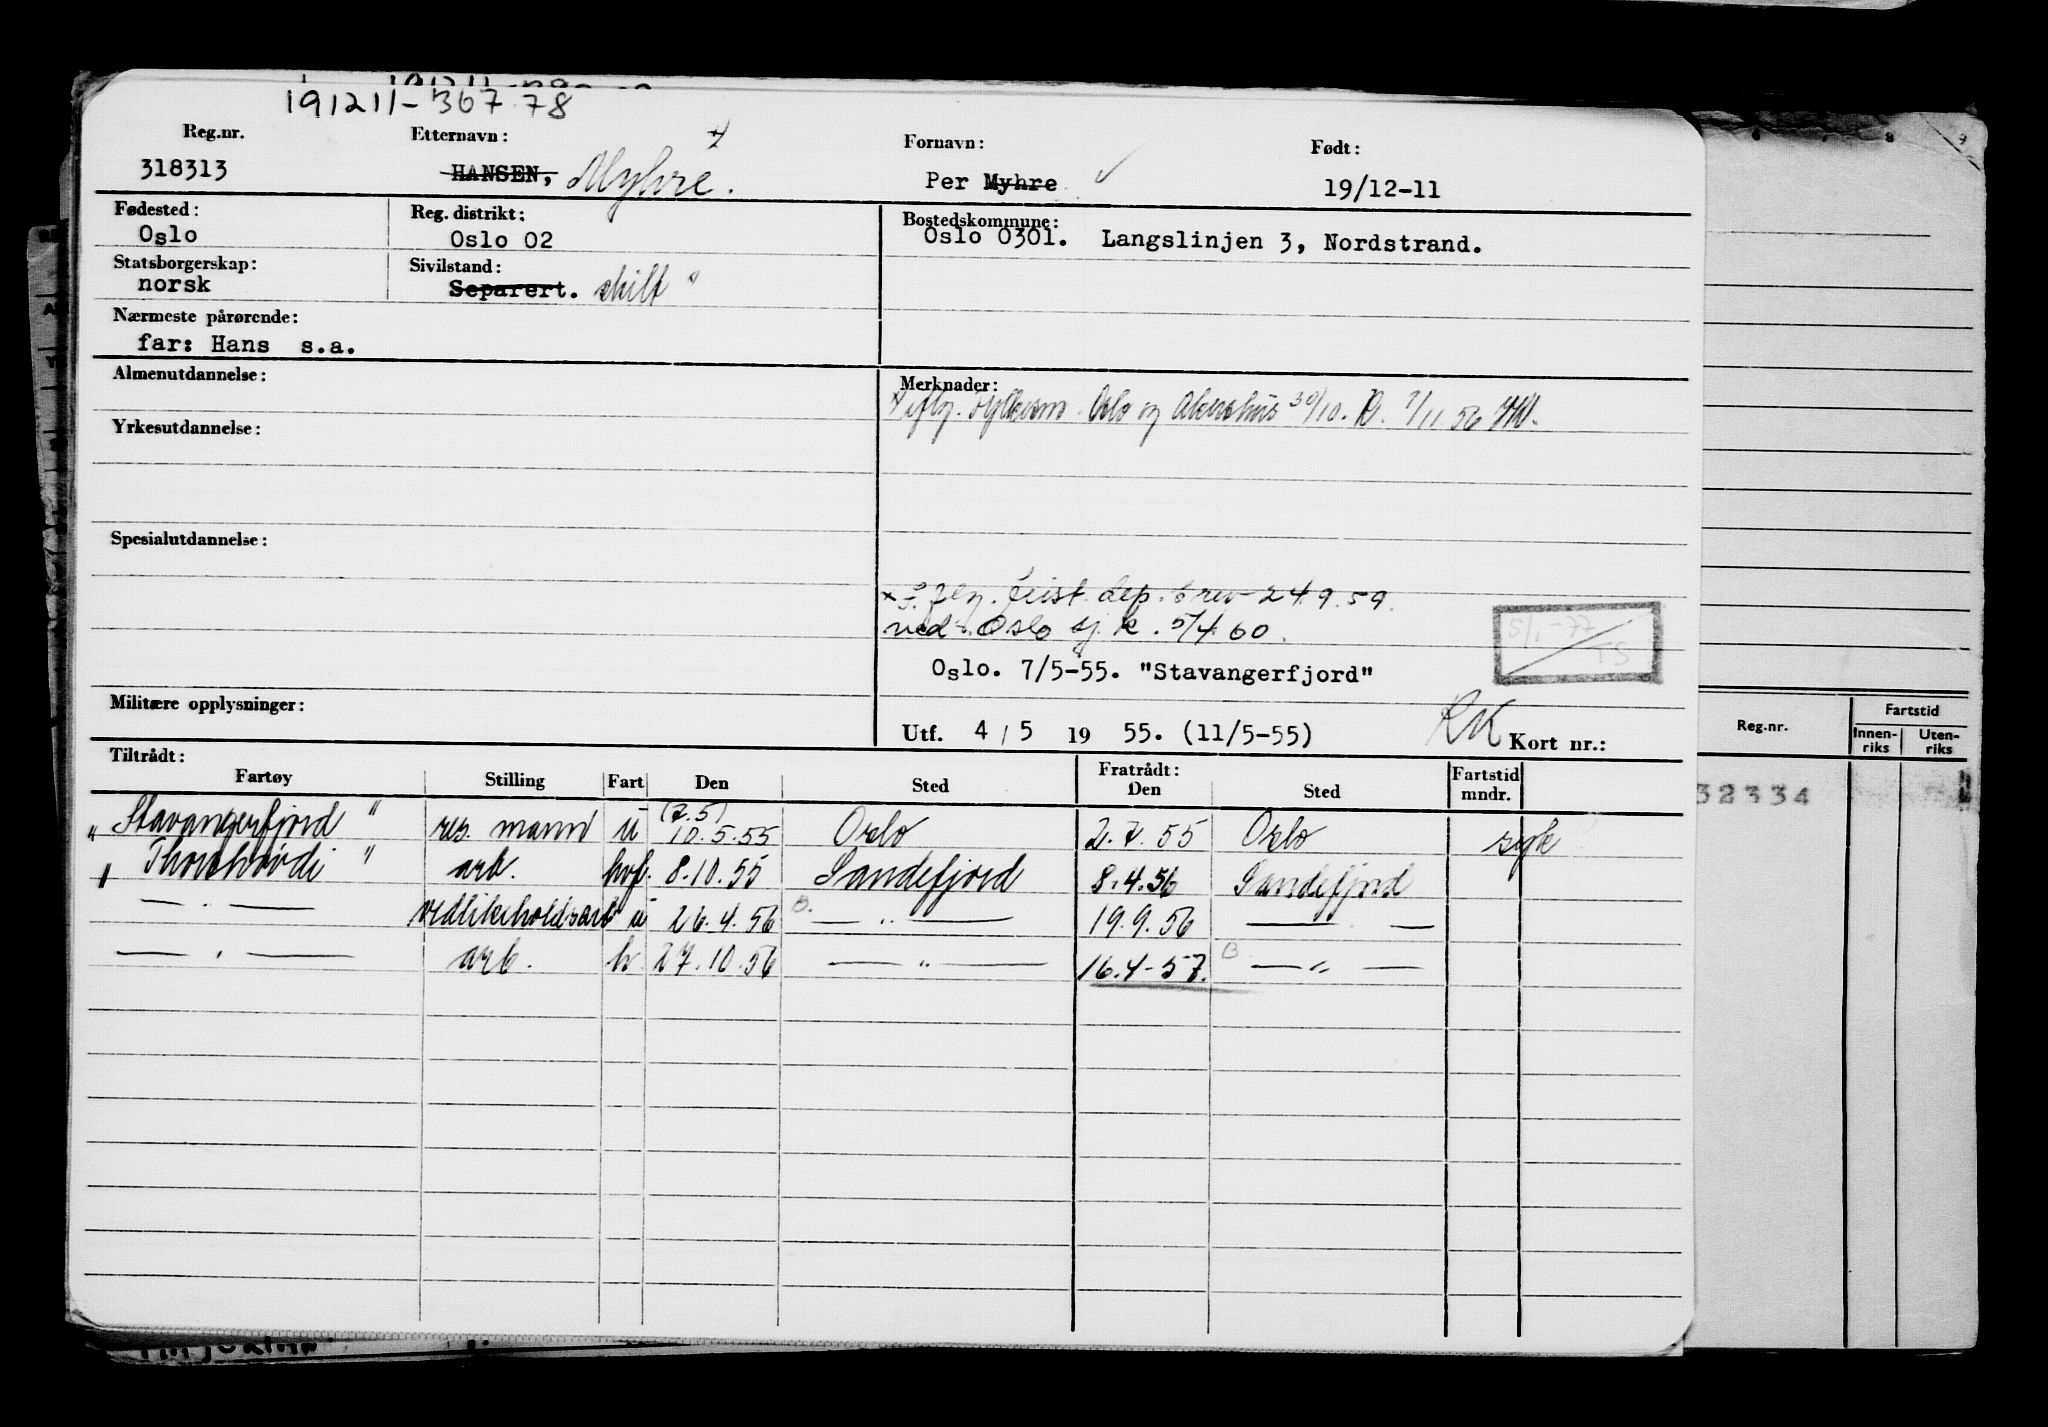 191211-36778
Reg.nr. Etternavn: Fornavn: Født:
318313 HANSEN, Myhre. Per Myhre 19/12-11
Fødested: Reg. distrikt: Bostedskommune:
Oslo Oslo 02 Oslo 0301. Langslinjen 3, Nordstrand.
Statsborgerskap: Sivilstand:
norsk Separert. skilt
Nærmeste pårørende:
far: Hans s.a.
Almenutdannelse: Merknader:
iflg. fylkesm. Oslo og Akershus 30/10. 7/11.56
Yrkesutdannelse:
Spesialutdannelse:
flg. Just. dep. brev 24.9.59.
ved Oslo sj. k. 5/4 60.
5/1-77
TS
Oslo. 7/5-55. "Stavangerfjord"
Militære opplysninger:
Utf. 4/5 1955. (11/5-55) RK Kort nr.:
Reg.nr. Fartstid
Innen-riks Uten-riks
Tiltrådt: Fratrådt:
Fartøy Stilling Fart Den Sted Den Sted Fartstid mndr.
32334
(7.5)
"Stavangerfjord" res. mann u 10.5.55 Oslo 2.7.55 Oslo syk
"Thorshøvdi" arb. hvf. 8.10.55 Sandefjord 8.4.56 Sandefjord
— " — vedlikeholdsarb u 26.4.56 B. — " — 19.9.56 — —
— " — arb. h. 27.10.56 — " — 16.4-57. B — " —